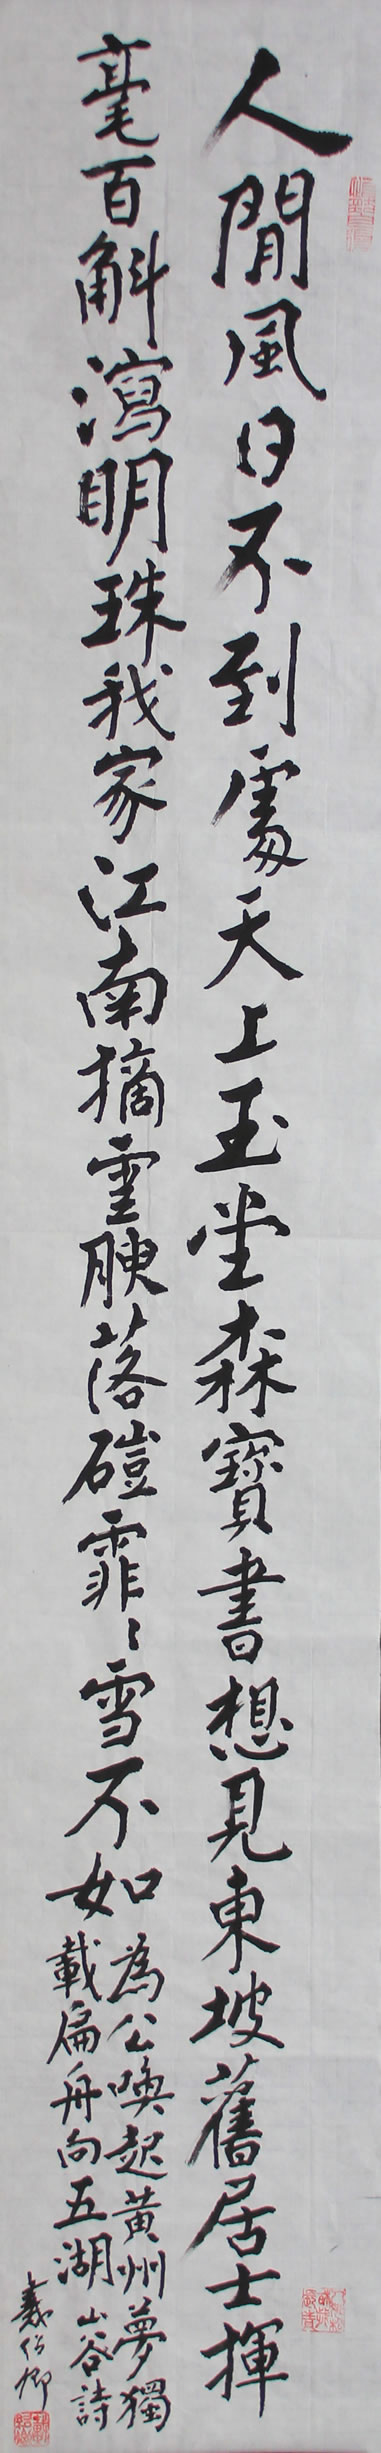 人間風日不到處天上玉堂森寶書想見東坡舊居士揮
毫百斛瀉明珠我家江南摘雲腴落磑霏〻雪不如
為公喚起黃州夢獨
載扁舟向五湖山谷詩